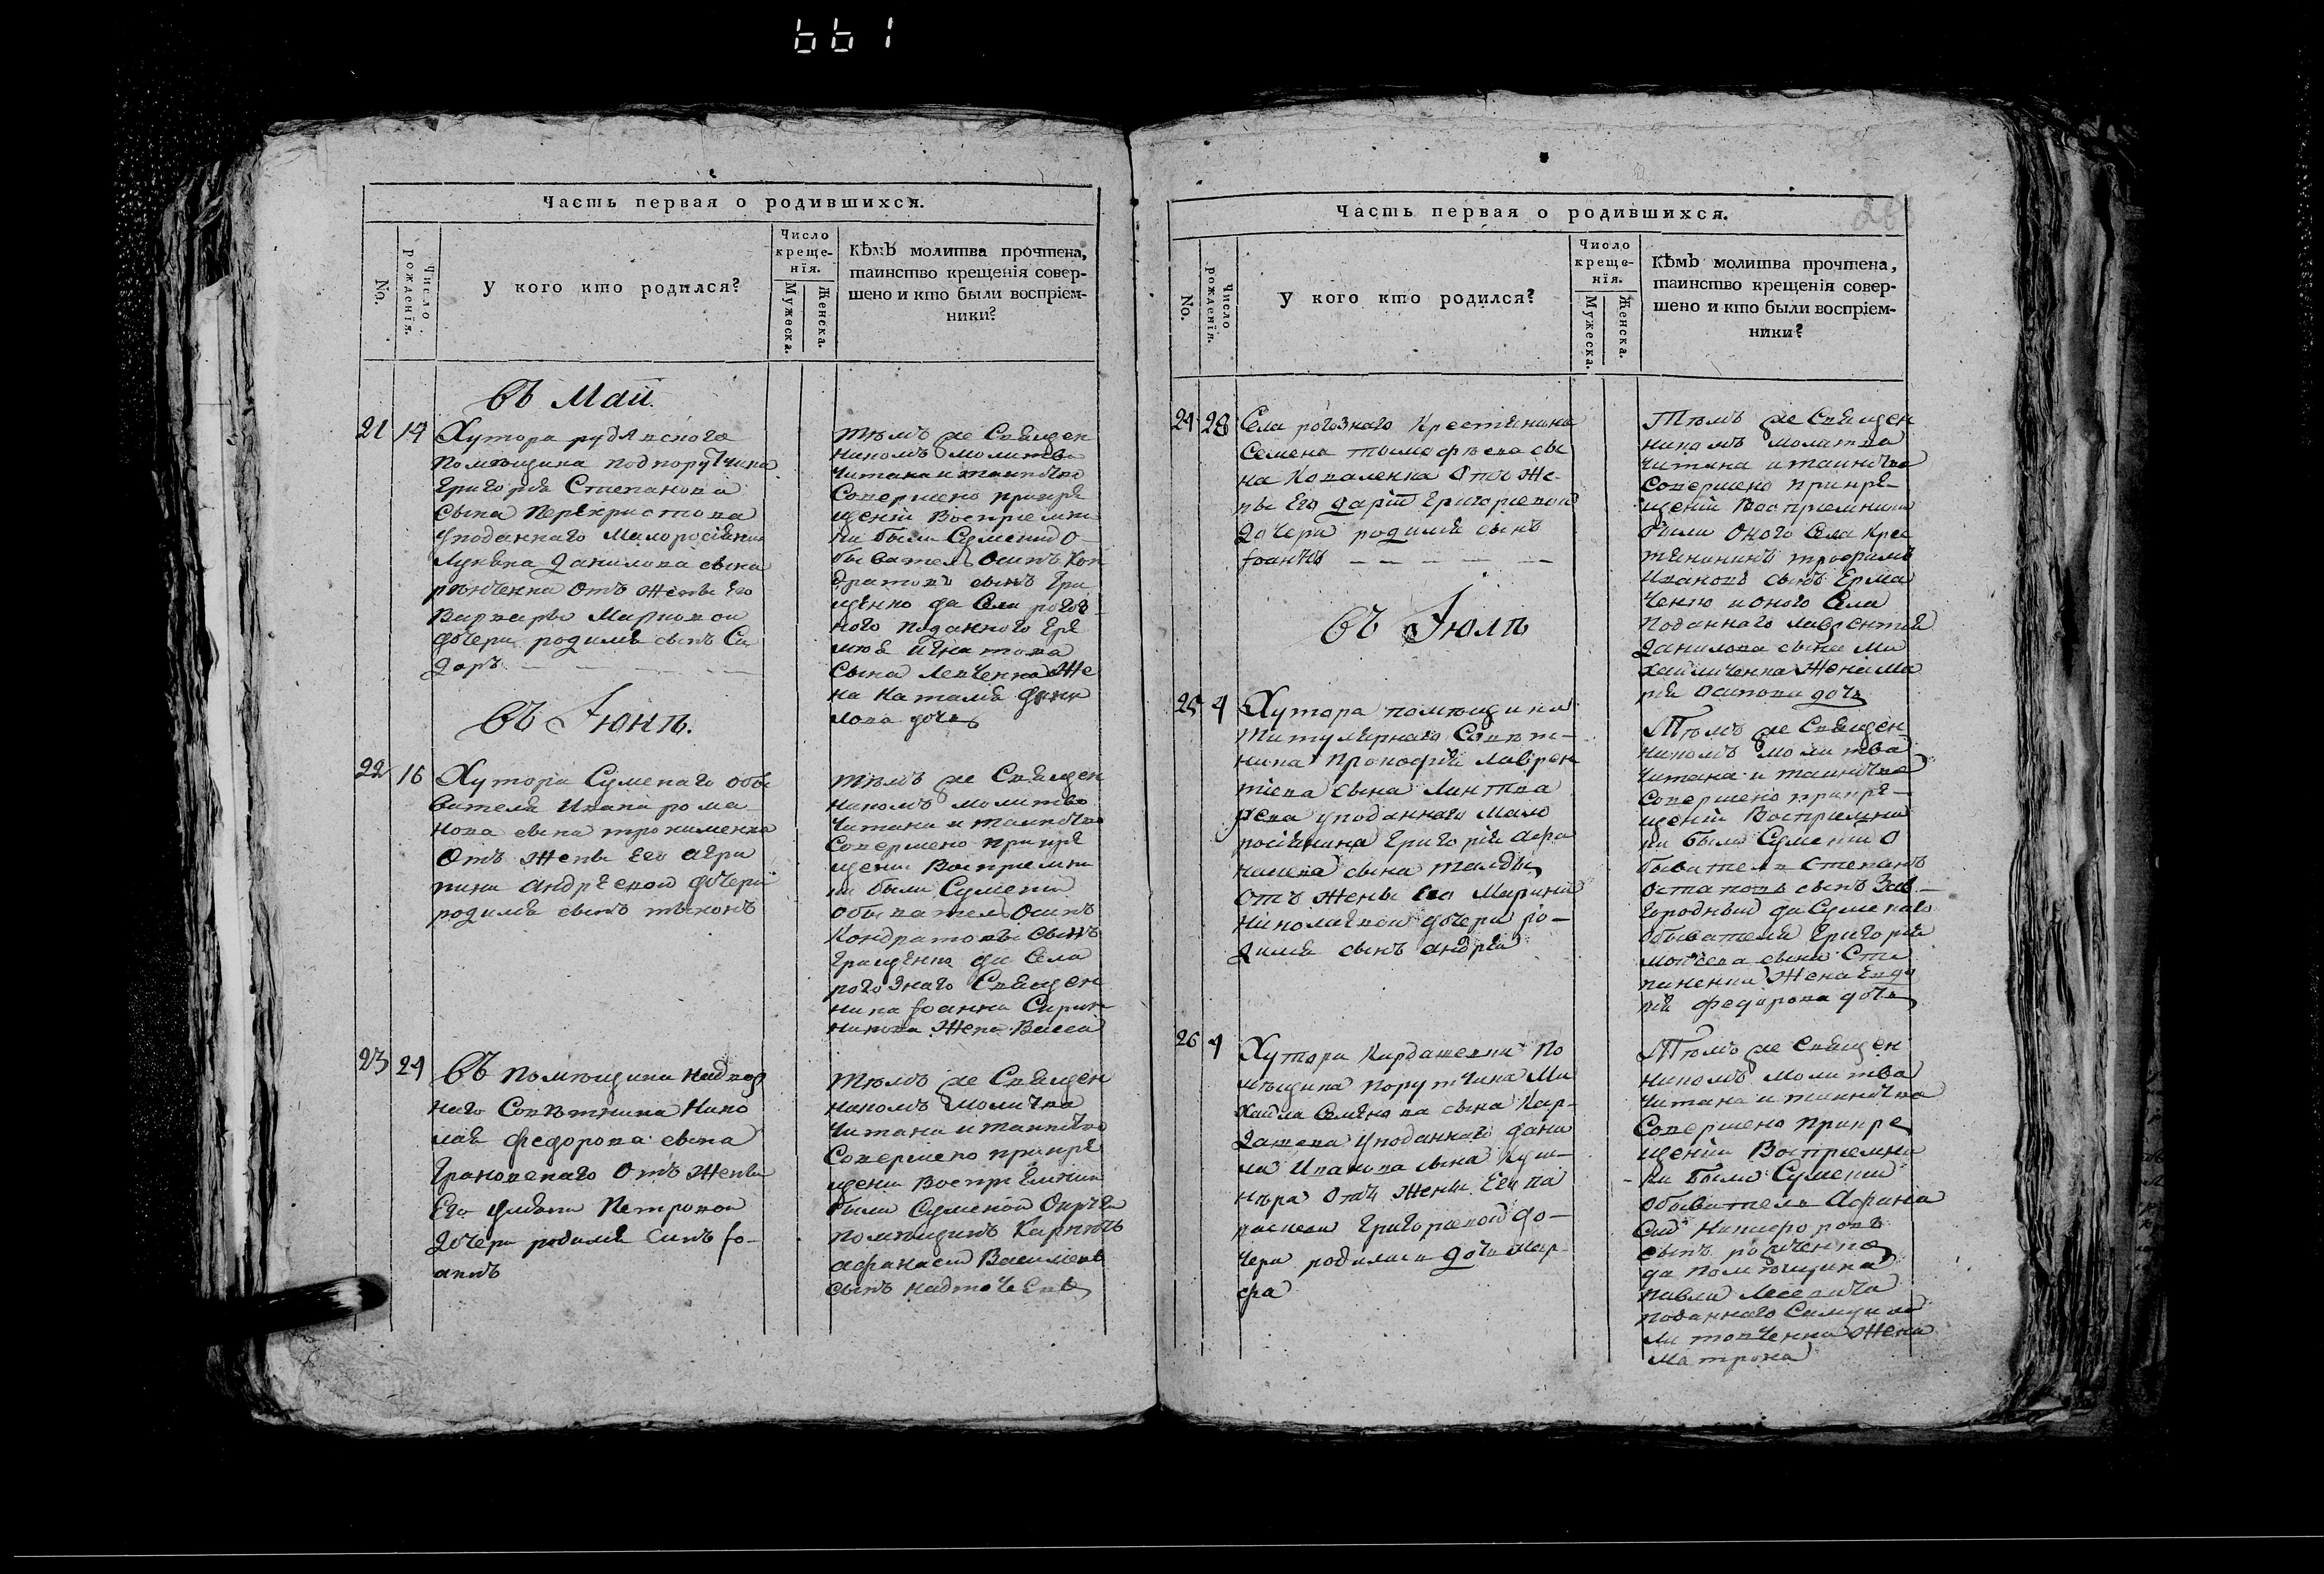 661
Часть первая о родившихся.
No.
Число рожденія.
У кого кто родился?
Число креще-
нія.
Мужеска.
Женска.
Кѣмъ молитва прочтена,
таинство крещенія совер-
шено и кто были воспріем-
ники?
Въ Маи
21 14
Хутора
Помѣщика подпорутчика
Григорія Степанова
сына Перекрестова
уподаннаго Малоросіянина
Лукяна данилова сына
отъ жены Его
Варвары Марковой
дочери родился сынъ Си
доръ
Тѣмъ же Священ
никомъ молитва
читана и таинство
Совершено прикре
щеніи Восприемни
ки были Сумскии о
быватель Осипъ Кон
дратовъ сынъ Гри
щенко да Села рогоз
ного поданного Ере
мѣя Игнатова
сына Левченка Же
на Наталия дани
лова дочь
Въ Іюнѣ.
22 16
Хутора Сумскаго обы
вателя Ивана рома
нова сына трохименка
Отъ Жены Его агри
пины андреевой дочери
родился сынъ тихонъ
Тѣмъ же Священ
никомъ молитва
читана и таинство
Совершено прикре
щении Восприемни
ки были Сумскии
обыватель Осипъ
Кондратовъ Сынъ
Грищенко да Села
рогознаго Священ
ника Іоанна
Жена Васса
23 24
Въ помѣщика надвор
наго Совѣтника Нико
лая федорова сына
Грановскаго Отъ Жены
Его Петровой
дочери родился Синъ Іо-
аннъ
Тѣмъ же Священ
никомъ Молитва
читана и таинство
Совершено прикре
щении восприемники
были Сумской Округи
помѣщикъ
афанасий Василиевъ
сынъ
Часть первая о родившихся.
28
No.
Число рожденія.
У кого кто родился?
Число креще-
нія.
Мужеска.
Женска.
Кѣмъ молитва прочтена,
таинство крещенія совер-
шено и кто были воспріем-
ники?
24 28
Села рогознаго Крестянина
Семена тимофѣева сы
на Коваленка Отъ Же-
ны Его дарии Григориевой
дочери родился сынъ
Іоаннъ
Тѣмъ же Священ
никомъ молитва
читана и таинство
Совершено прикре-
щении Восприемники
были оного Села Крес
тянининъ трофимъ
Ивановъ сынъ Ерма
ченко и оного Села
поданнаго лаврентия
данилова сына Ми
хайличенка Жена Ма
рия осипова дочь
Въ Іюлѣ
25 4
Хутора помѣщика
Титулярнаго Совѣт-
ника Прокофия Лаврен
тиева сына Линтва
рева уподаннаго Мало
росиянина Григория афа
насиева сына
отъ Жены его Марини
Николаевой дочери ро-
дился сынъ андрей
Тѣмъ же Священ-
никомъ молитва
читана и таинство
Совершено прикре-
щении Восприемни
ки были Сумскии о
быватель Степанъ
остаповъ сынъ Зав-
городный да Сумскаго
обывателя Григория
сына Сти
Жена Евдо
кия федорова дочь
26 4
Хутора Кардашевки По
мѣщика порутчика Ми
хаила Семенова сына Кар-
дашева уподаннаго дани
ла Иванова сына Куш-
нѣра отъ Жены Его па
раскеви Григориевой до-
чери родилася дочь Мар-
фа
Тѣмъ же Священ
никомъ Молитва
читана и таинство
Совершено прикре
щении Восприемни
ки были Сумскии
обыватель Афана
сий Никифоровъ
сынъ
да помѣщика
павла
поданнаго
Жена
Матрона